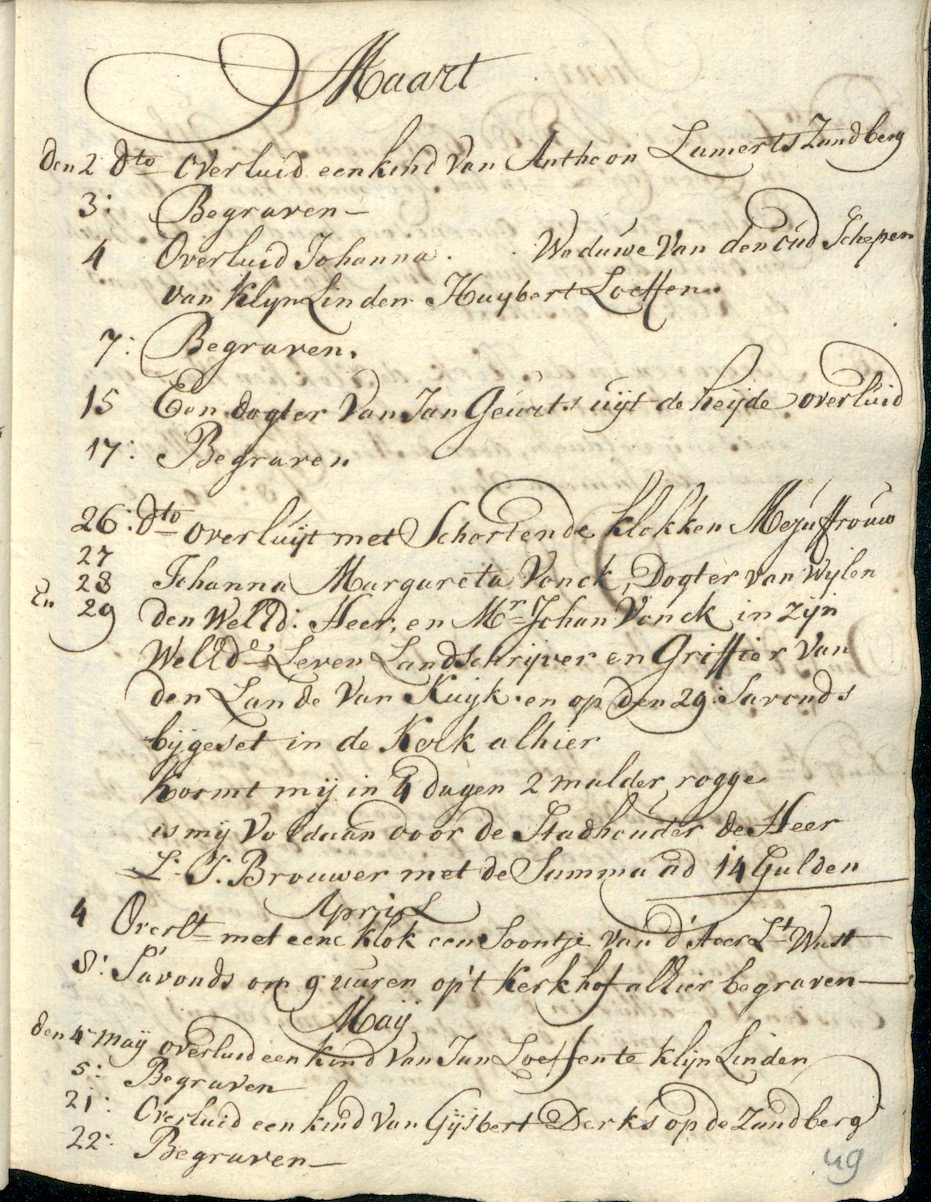 Maart
den 2 dto overluid een kind van Anthoon Lamerts Zandberg
3: Begraven
4 Overluid Johanna . . Weduwe van den oud Schepen
van Klijn Linden Huybert Loeffen.
7: Begraven.
15 Een dogter van Jan Geurts uijt de heijde overluid
17: Begraven
26: dto overluijt met Schortende klokken Mejuffrouw
27
28 Johanna Margareta Vonck, Dogter van Wijlen
En 29 den WelEd: Heer, en Mr Johan Vonck in zijn
WelEds Leven Landschrijver en Griffier van
den Lande van Kuijk en op den 29: Savonds
bijgeset in de Kerk alhier
komt mij in 4 dagen 2 malder rogge
is mij Voldaan door de Stadhouder de Heer
L. J. Brouwer met de Summa ad 14 Gulden
April
4 Overlt met eene klok een Soontje van d'Heer Lt Wust
8: S'avonds om 9 uuren op't Kerkhof alhier begraven
Maij
den 4 maij overluid een kind van Jan Loeffen te klijn Linden
5: Begraven
21: Overluid een kind van Gijsbert Derks op de Zandberg
22: Begraven
49